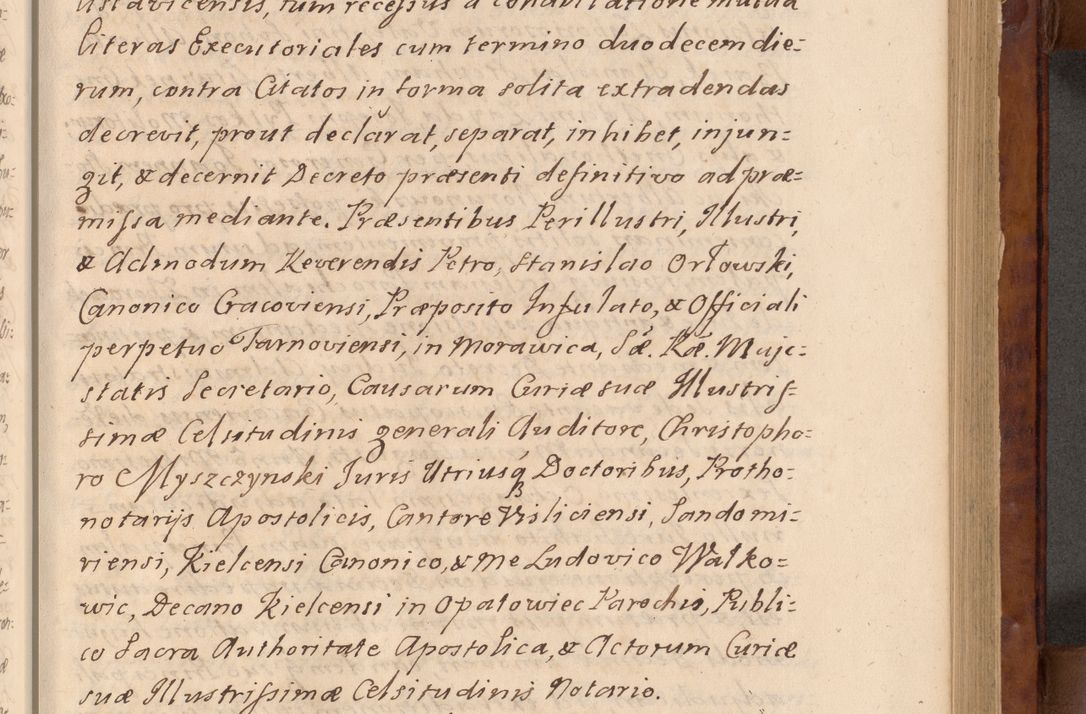 ustavicensis, tum recessus a cohabitatione mutua
literas Executoriales cum termino duodecem die=
rum, contra Citatos in forma solita extradendas
decrevit, prout declarat, separat, inhibet, injun=
git, & decernit Decreto præsenti definitivo ad præ=
missa mediante. Præsentibus Perillustri, Illustri,
& Admodum Reverendis Petro, Stanislao Orłowski,
Canonico Cracoviensi, Præposito Infulato, & Officiali
perpetuo Tarnoviensi, in Morawica, Sæ. Ræ. Maje=
statis Secretario, Causarum Curiæ suæ Illustris=
simæ Celsitudinis generali Auditore, Christopho=
ro Myszczynski Juris Utriusq Doctoribus, Protho=
notarijs Apostolicis, Cantore Visliciensi, Sandomi=
riensi, Kielcensi Canonico, & me Ludovico Walko=
wic, Decano Kielcensi in Opatowiec Parocho, Publi=
co Sacra Authoritate Apostolica, & Actorum Curiæ
suæ Illustrissimæ Celsitudinis Notario.